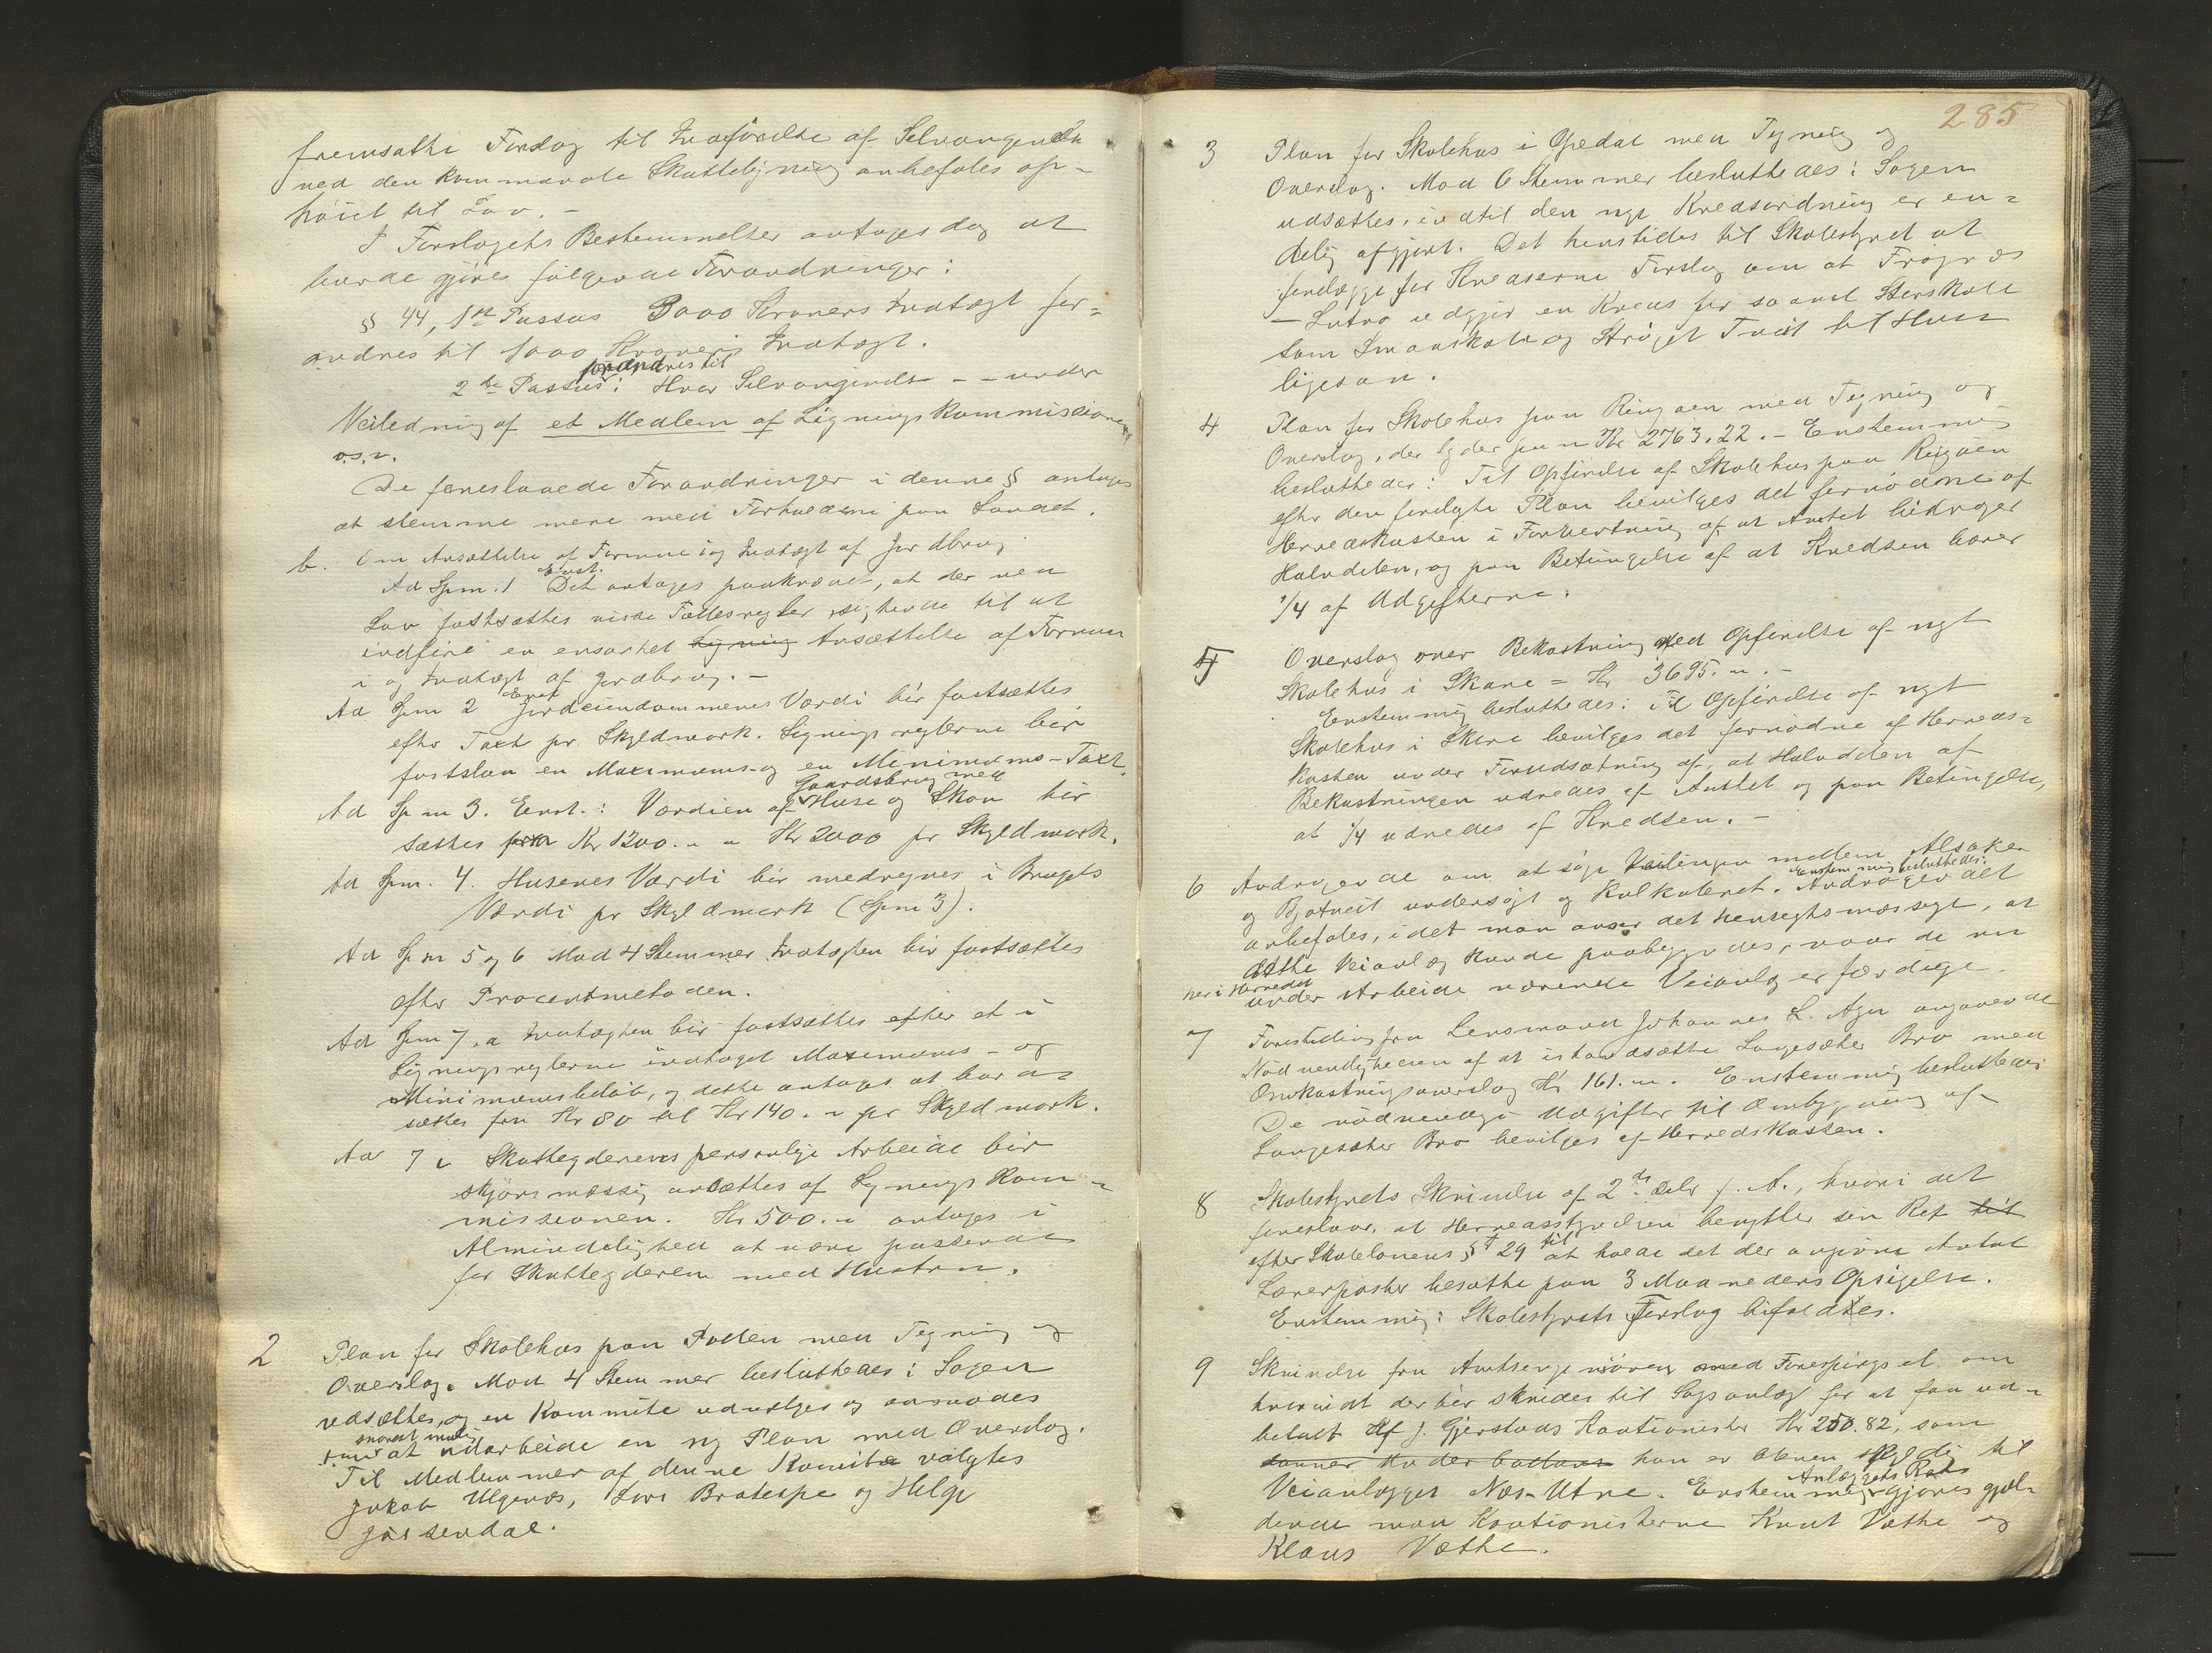 fremsatte Forslag til Indførelse af Selvangivelse
ved den kommunale Skatteligning anbefales op-
høiet til Lov. -
I Forslagets Bestemmelser antages dog at
burde gjøres følgende Forandringer:
§ 44, 1ste Passus 3000 Kroners Indtægt for-
andres til 1000 Kroners Indtægt.
2den Passus: forandres til Hver Selvangivelse - - under
Veiledning af et Medlem af Ligningskommissionen
o.s.v.
De foreslaaede Forandringer i denne § antages
at stemme mere med Forholdene paa Landet.
b. Om Ansættelse af Formue i og Indtægt af Jordbrug
Ad Spm. 1 Enst. Det antages paakrævet, at der ved
Lov fastsættes visse Fællesregler, sigtende til at
indføre en ensartet Ligning Ansættelse af Formue
i og Indtægt af Jordbrug. -
Ad Spm 2 Enst Jordeiendommenes Værdi bør fastsættes
efter Taxt pr. Skyldmark. Ligningsreglerne bør
fastslaa en Maximums- og en Minimums-Taxt.
Ad Spm 3. Enst.: Værdien af Gaardsbrug med Huse og Skov bør
sættes fra Kr 1200. - - Kr 2000 pr Skyldmark.
Ad Spm. 4. Husenes Værdi bør medregnes i Brugets
Værdi pr Skyldmark (Spm 3).
Ad Spm 5 og 6 Mod 4 Stemmer Indtægten bør fastsættes
efter Procentmetoden.
Ad Spm 7. a Indtægten bør fastsættes efter et i
Ligningsreglerne indtaget Maximums- og
Minimumsbeløb, og dette antages at burde
sættes fra Kr 80 til Kr 140. - pr Skyldmark.
Ad 7 c Skatteyderens personlige Arbeide bør
skjønsmæssig ansættes af Ligningskom-
missionen. Kr 500. - antages i
Almindelighed at være passende
for Skatteyderen med Hustru.
2 Plan for Skolehus paa Sollen med Tegning og
Overslag. Mod 4 Stemmer besluttedes: Sagen
udsættes, og en Kommite udvælges og anmodes
om snarest mulig at udarbeide en ny Plan med Overslag.
Til Medlemmer af denne Komite valgtes
Jakob Ulgenæs, Lars Bratespe og Helge
Jaastendal.
285
3 Plan for Skolehus i Opedal med Tegning og
Overslag. Mod 6 Stemmer besluttedes: Sagen
udsættes, indtil den nye Kredsordning er en-
delig afgjort. Det henstilles til Skolestyret at
forelægge for Kredserne Forslag om at Frøynes
- Lutro udgjør en Kreds for saavel Storskole
som Smaaskole og Strøget Tveit til Hus
ligesaa.
4 Plan for Skolehus paa Ringøen med Tegning og
Overslag, der lyder paa Kr 2763.22. - Enstemmig
besluttedes: Til Opførelse af Skolehus paa Ringøen
efter den forelagte Plan bevilges det fornødne af
Herredskassen i Forventning af at Amtet bidrager
Halvdelen, og paa Betingelse af at Kredsen bærer
1/4 af Udgifterne.
5 Overslag over Bekostning ved Opførelse af nyt
Skolehus i Skare = Kr 3695. -
Enstemmig besluttedes: Til Opførelse af nyt
Skolehus i Skare bevilges det fornødne af Herreds-
kassen under Forudsætning af, at Halvdelen af
Bekostningen udredes af Amtet og paa Betingelse,
at 1/4 udredes af Kredsen. -
6 Andragende om at søge Veilinjen mellem Alsaker
og Bjotveit undersøgt og kalkuleret. Enstemmig besluttedes: Andragendet
anbefales, idet man anser det hensigtsmæssigt, at
dette Veianlæg kunde paabegyndes, naar de nu
her i Herredet under Arbeide værende Veianlæg er færdige.
7 Forestilling fra Lensmand Johannes L. Aga angaaende
Nødvendigheden af at istandsætte Langesæter Bro med
Omkostningsoverslag Kr 161. -. Enstemmig besluttedes:
De nødvendige Udgifter til Ombygning af
Langesæter Bro bevilges af Herredskassen.
8 Skolestyrets Skrivelse af 2den Dcbr f. A., hvori det
foreslaar, at Herredsstyrelsen benytter sin Ret til
efter Skolelovens § 29 til at holde det der angivne Antal
Lærerposter besatte paa 3 Maaneders Opsigelse.
Enstemmig: Skolestyrets Forslag bifaldtes.
9 Skrivelse fra Amtsingeniøren med Forespørgsel om
hvorvidt der bør skrides til Sagsanlæg for at faa ud-
betalt af J. Gjerstads Kautionister Kr 250.82, som
han er bleven skyldig til
Veianlægget Næs-Utne. Enstemmig Anlæggets Ret gjøres gjæl-
dende mod Kautionisterne Knut Væthe og
Klaus Væthe.